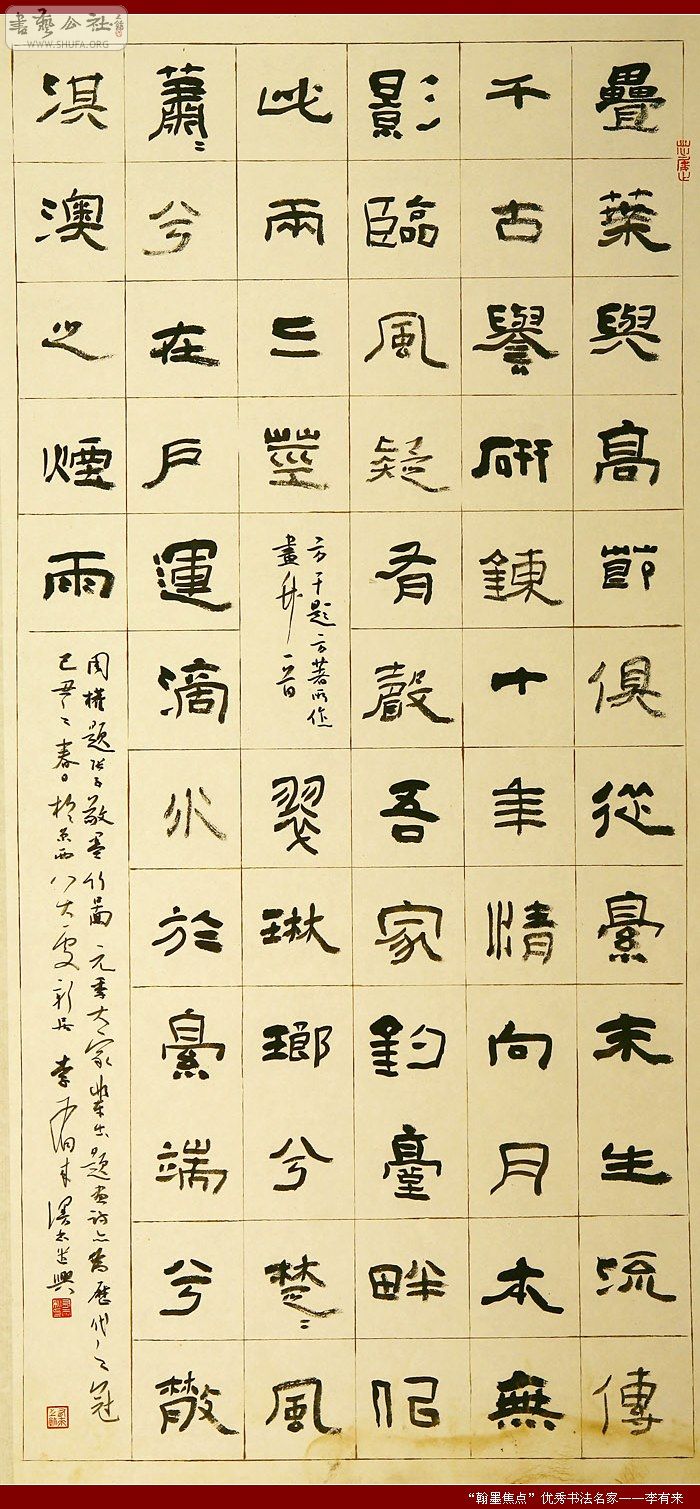 書藝公社
WWW.SHUFA.ORG
疊葉與高節俱從毫末生流傳
千古譽研鍊十年情向月本無
影臨風疑有聲吾家釣臺畔似
此兩三莖
方干題方著所作
畫竹一首
翠琳瑯兮楚〻風
蕭〻兮在戶運滴水於毫端兮散
淇澳之煙雨
周權題張子敬畫竹圖 元季大家輩出題畫詩亦為歷代之冠
己丑之春日於京西八大處新居 李有來
“翰墨焦点”优秀书法名家——李有来